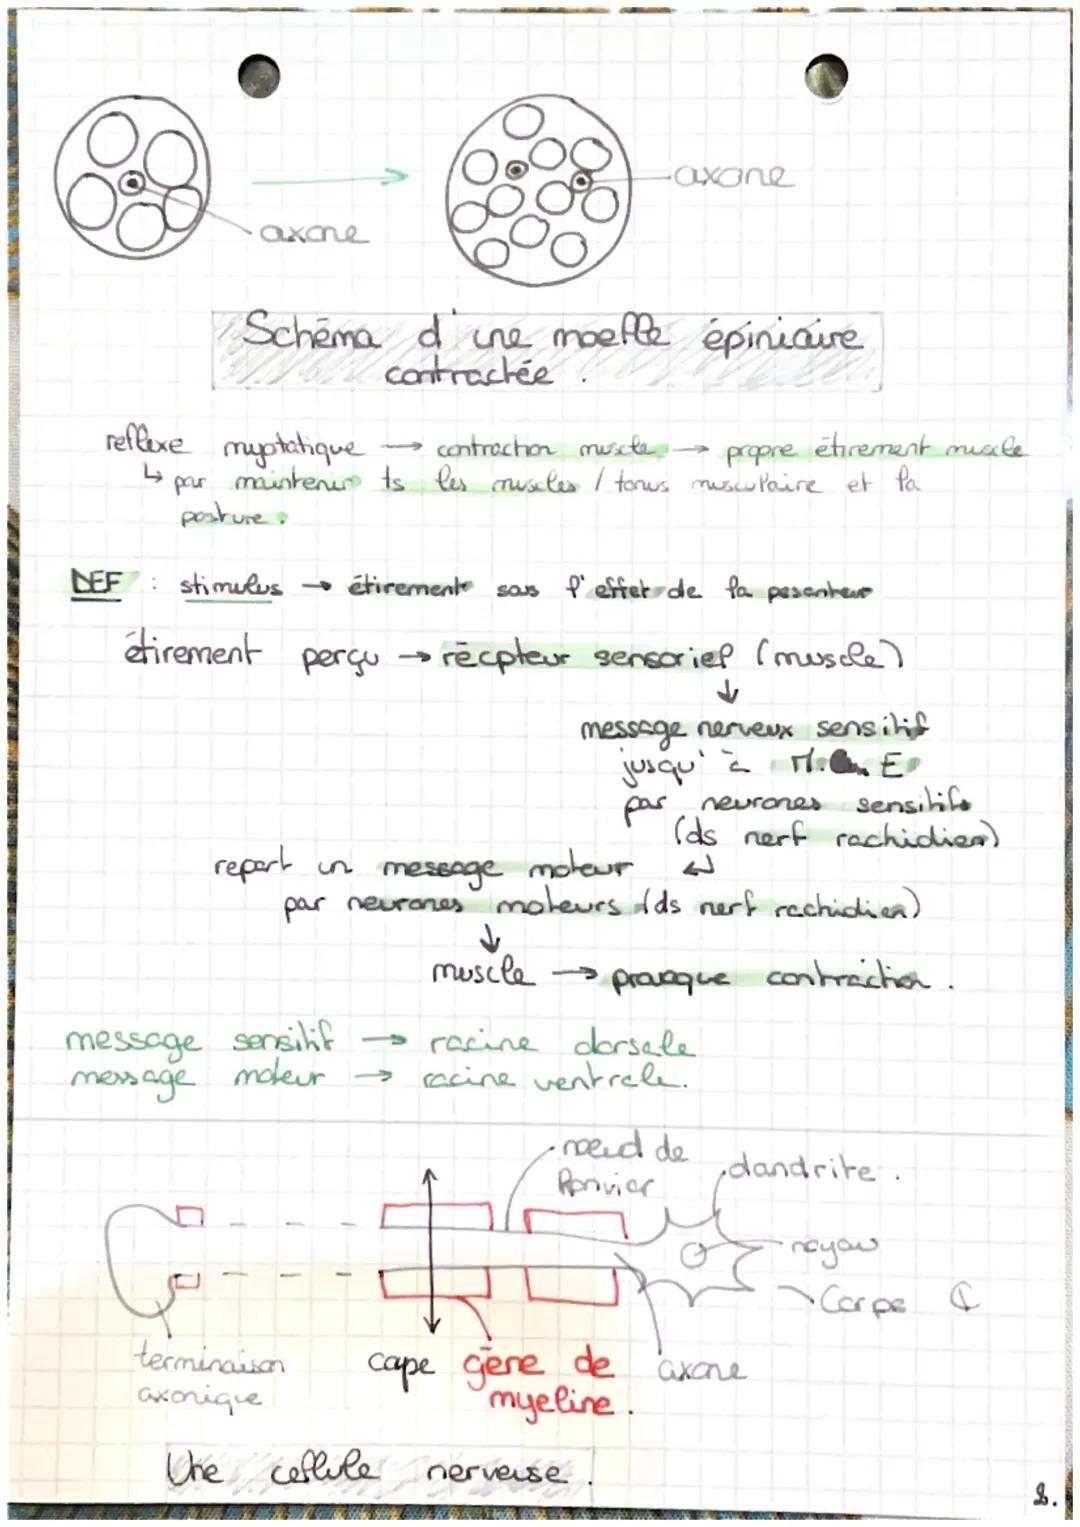 axone
axone
Schéma d'une moelle épiniaire
contractée.
reflexe myotatique → contraction muscle → propre étirement muscle
↳ par maintenir ts les muscles / tonus musculaire et la
posture.
DEF : stimulus → étirement sous l'effet de la pesanteur
étirement perçu → récpteur sensoriel (muscle)
↓
message nerveux sensitif
jusqu'à M. E
par neurones sensitifs
(ds nerf rachidien)
repart un message moteur ↵
par neurones moteurs (ds nerf rachidien)
↓
muscle → provoque contraction.
message sensitif → racine dorsale
message moteur → racine ventrale.
noeud de
Ranvier
dandrite.
noyau
Corps C
terminaison
axonique
cape
gène de
myeline.
axone
Une cellule nerveuse.
8.